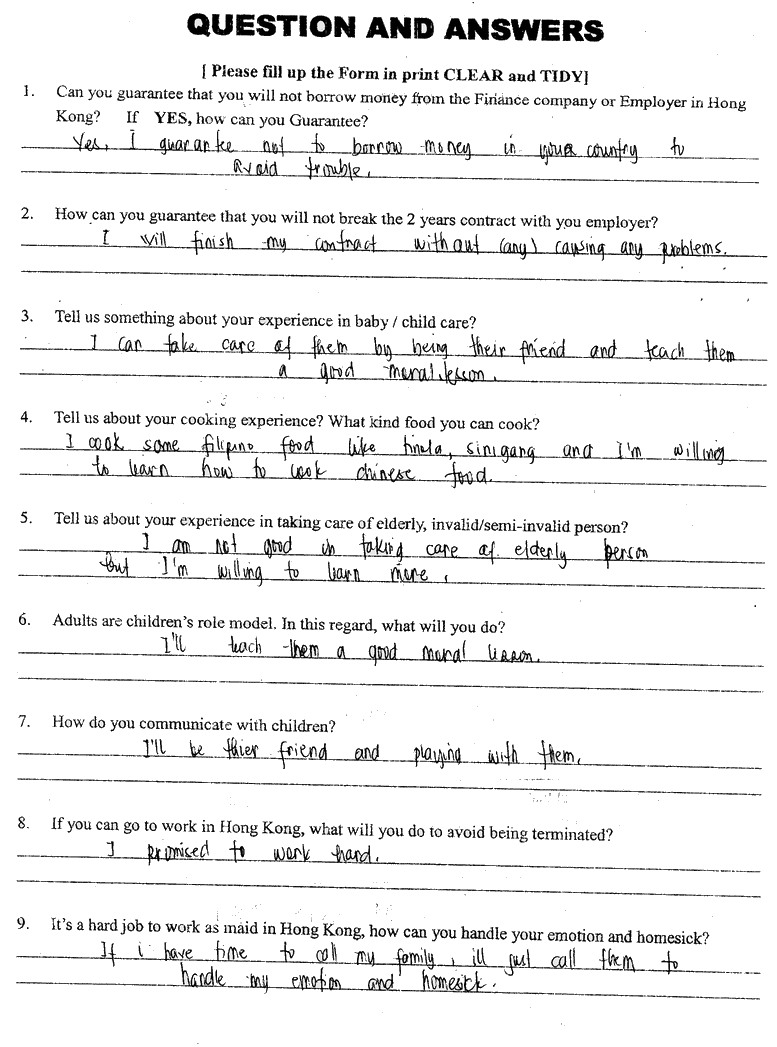 QUESTION AND ANSWERS
[ Please fill up the Form in print CLEAR and TIDY]
1. Can you guarantee that you will not borrow money from the Finance company or Employer in Hong
Kong? If YES, how can you Guarantee?
Yes, I guarantee not to borrow money in your country to
Avoid trouble.
2. How can you guarantee that you will not break the 2 years contract with you employer?
I will finish my contract without (any) causing any problems.
3. Tell us something about your experience in baby / child care?
I can take care of them by being their friend and teach them
a good moral lesson.
4. Tell us about your cooking experience? What kind food you can cook?
I cook some filipino food like tinola, sinigang and I'm willing
to learn how to cook chinese food.
5. Tell us about your experience in taking care of elderly, invalid/semi-invalid person?
I am not good in taking care of elderly person
but I'm willing to learn more.
6. Adults are children's role model. In this regard, what will you do?
I'll teach them a good moral lesson.
7. How do you communicate with children?
I'll be thier friend and playing with them.
8. If you can go to work in Hong Kong, what will you do to avoid being terminated?
I promised to work hard.
9. It's a hard job to work as maid in Hong Kong, how can you handle your emotion and homesick?
If i have time to call my family, ill just call them to
handle my emotion and homesick.